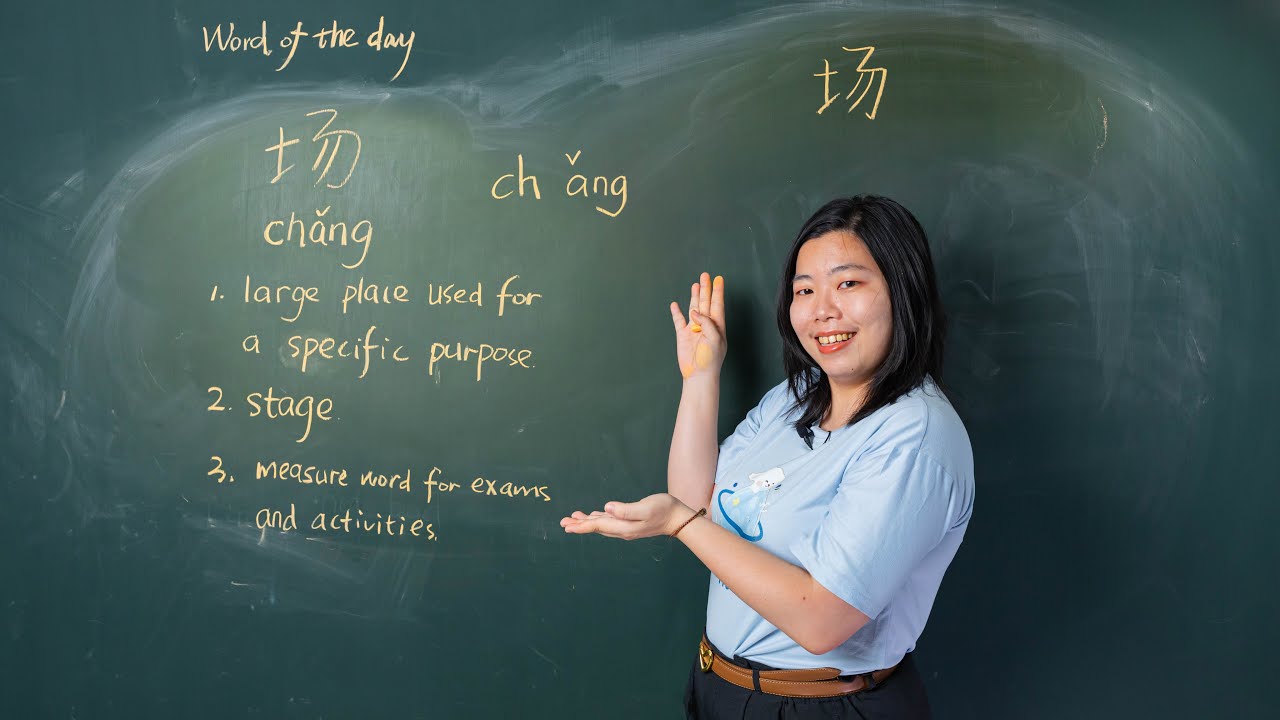 Word of the day
场
场
chǎng
ch ǎng
1. large place used for
a specific purpose.
2. stage.
3. measure word for exams
and activities.